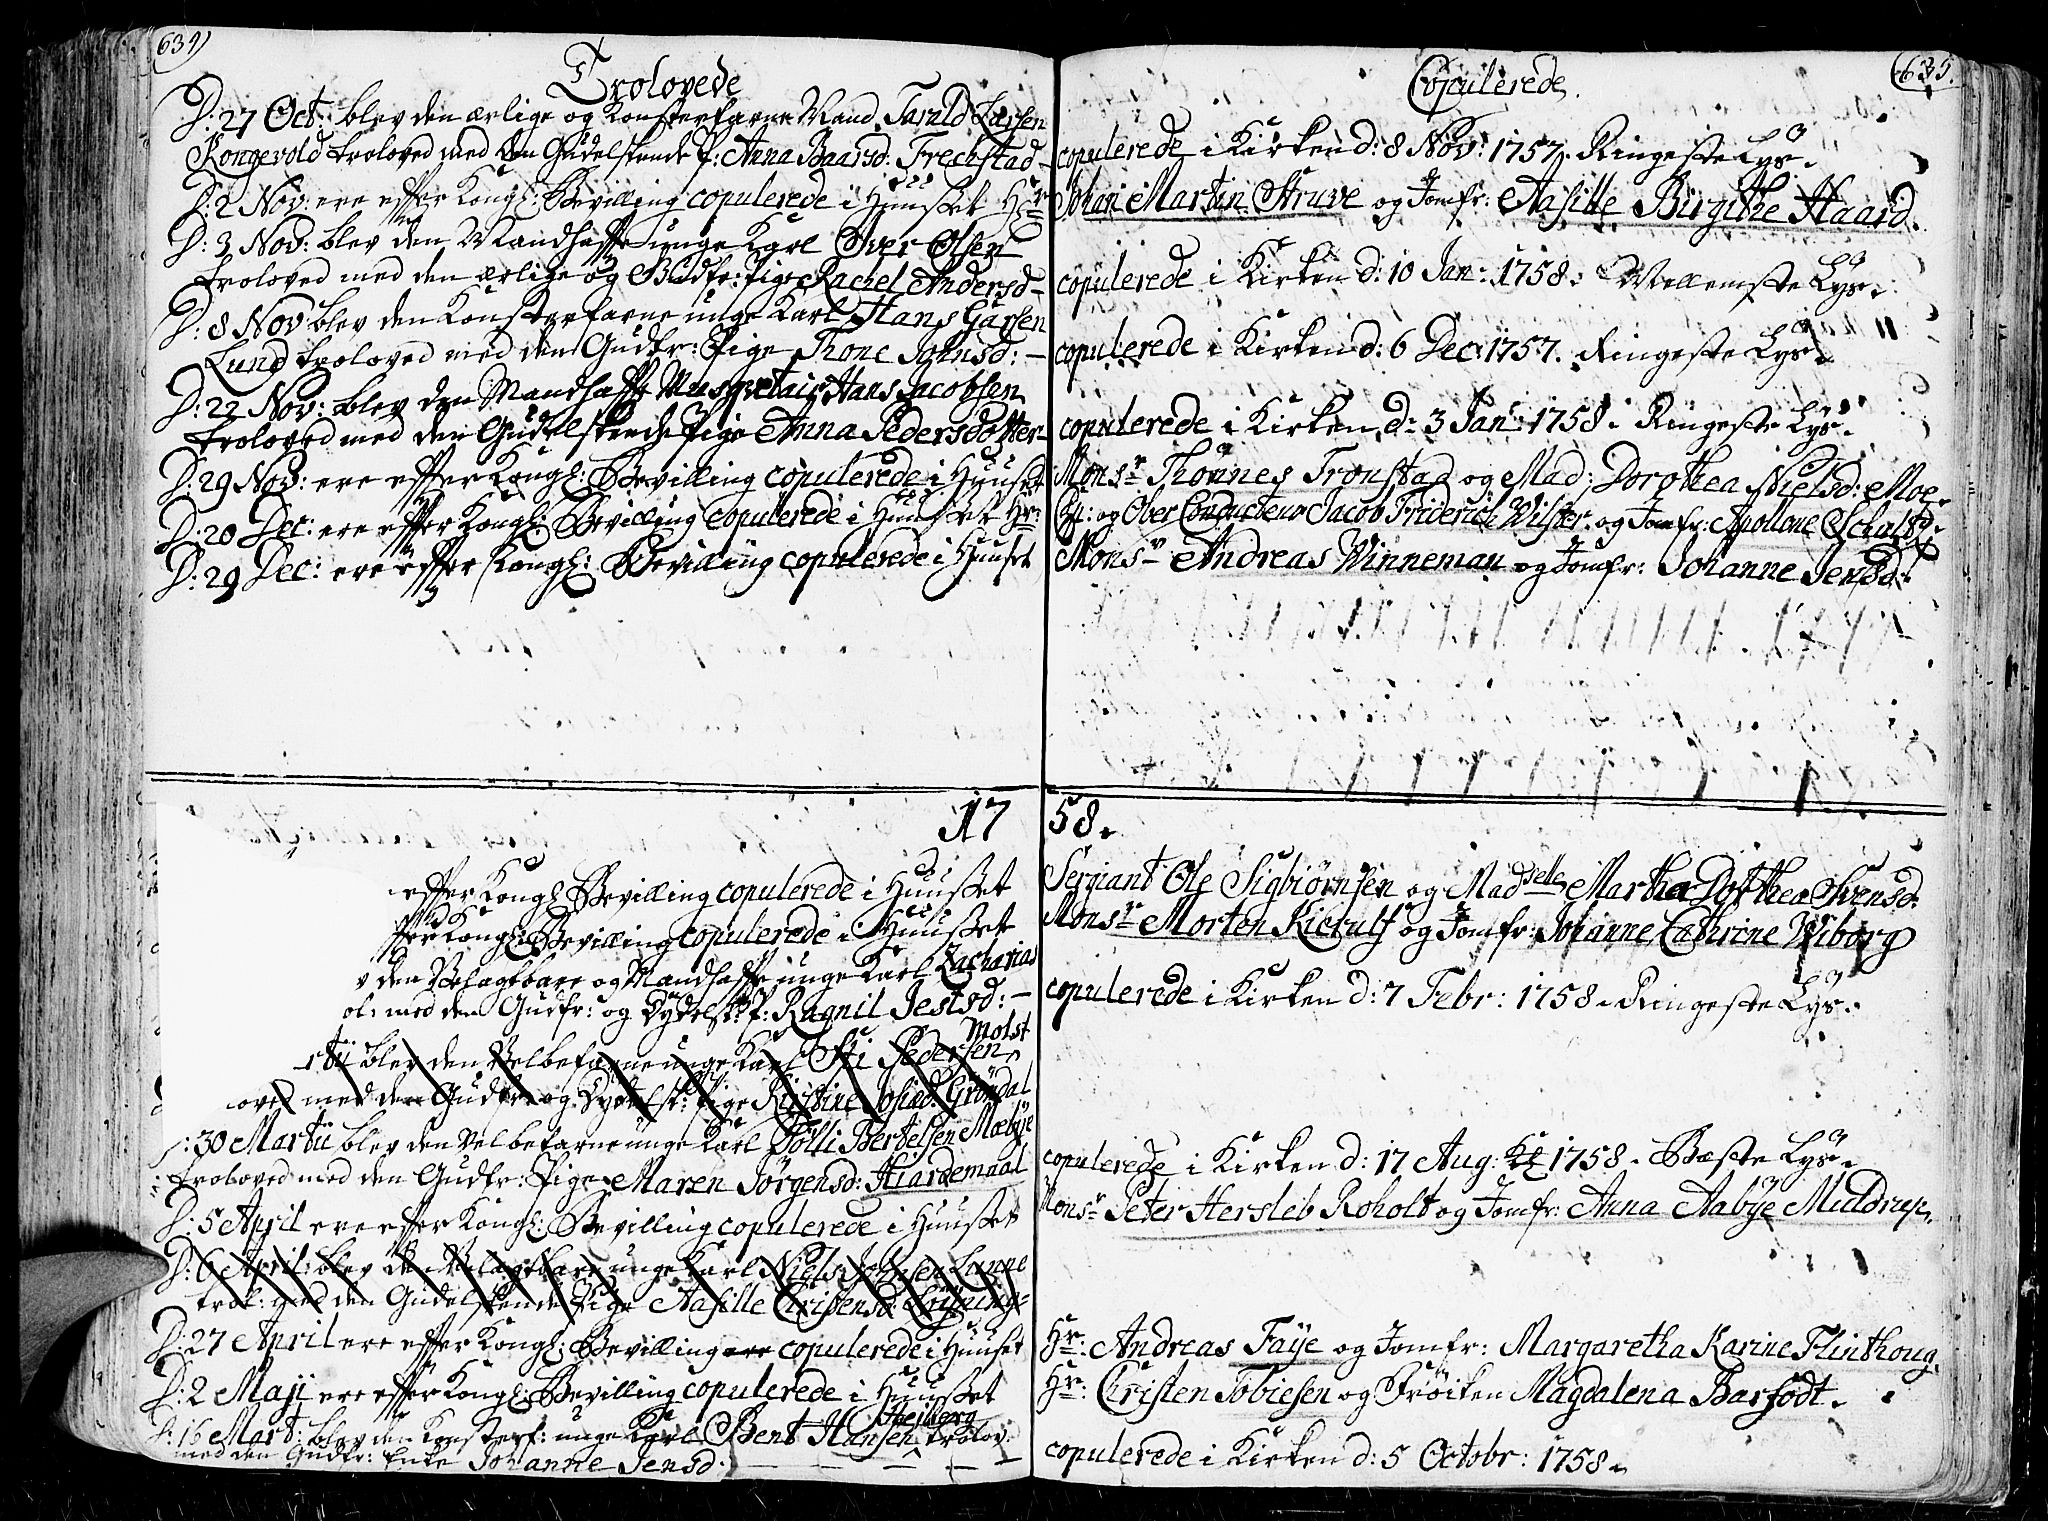 634)
Trolovede
D: 27 Oct: blev den ærlige og Konsterfarne Mand Tarald Larsen
Kongevold troloved med den Gudelskende P: Anna Baarsd: Frechstad
D: 2 Nov: ere efter Kongl: Bevilling copulerede i Huuset Hr
D: 3 Nov: blev den Mandhafte unge Karl Iver Olsen
troloved med den ærlige og Gudfr: Pige Rachel Andersd
D: 8 Nov: blev den Konsterfarne unge Karl Hans
Lund troloved med den Gudfr: Pige Thone Johnsd: —
D: 22 Nov: blev den Mandhafte Musquetair Hans Jacobsen
troloved med den Gudelskende Pige Anna Pedersdotter
D: 29 Nov: ere efter Kongl: Bevilling copulerede i Huuset
D: 20 Dec: ere efter Kongl: Bevilling copulerede i Huuset Hr:
D: 29 Dec: ere efter Kongl: Bevilling copulerede i Huuset
17
efter Kongl: Bevilling copulerede i Huuset
Kongl: Bevilling copulerede i Huuset
den Velagtbare og Mandhafte unge Karl Zacharias
med den Gudfr: og Dydelsk: P: Ragnil Jestsd: —
blev den Velbefarne unge Karl Sti Pedersen Molst
med den Gudfr: og Dydelsk: Pige Kirstine Grøndal
30 Martii blev den Velbefarne unge Karl Tølli Bertelsen Mæbye
troloved med den Gudfr: Pige Maren Jørgensd: Hiardemaal
D: 5 April ere efter Kongl: Bevilling copulerede i Huuset
D: 6 April: blev den Velagtbare unge Karl Niels Johnsen Lunne
trol: med den Gudelskende Pige Aasille
D: 27 April ere efter Kongl: Bevilling ere copulerede i Huuset
D: 2 Maji ere efter Kongl: Bevilling copulerede i Huuset
D: 16 Mart: blev den Konsterf: unge Karl Bent Hansen Heiberg trolov:
med den Gudfr: Enke Johanne Jensd:
635.
Copulerede.
copulerede i Kirken d: 8 Nov: 1757. Ringeste Lys.
Johan Martin Struve og Jomfr: Aasille Birgithe Haard.
copulerede i Kirken d: 10 Jan: 1758. Mellemste Lys.
copulerede i Kirken d: 6 Dec: 1757. Ringeste Lys.
copulerede i Kirken d: 3 Jan: 1758. Ringeste Lys.
Monsr Thønnes Tronstad og Mad: Dorothea Nielsd: Moe.
og Over Conducteur Jacob Friderich Wilster og Jomfr: Apollone
Monsr Andreas Winneman og Jomfr: Johanne Jensd:
58.
Sergiant Ole Sigbiørnsen og Madselle Martha Dorthea Svensd:
Monsr Morten Kierulf og Jomfr: Johanne Cathrine Wiborg
copulerede i Kirken d: 7 Febr: 1758. Ringeste Lys.
copulerede i Kirken d: 17 Aug: 1758. Bæste Lys.
Monsr Peter Hersleb Roholt og Jomfr: Anna Aabye Muldrup.
Hr: Andreas Faye og Jomfr: Margaretha Karine Flinthoug.
Hr: Christen Tobiesen og Frøiken Magdalena Barfodt.
copulerede i Kirken d: 5 Octobr: 1758.